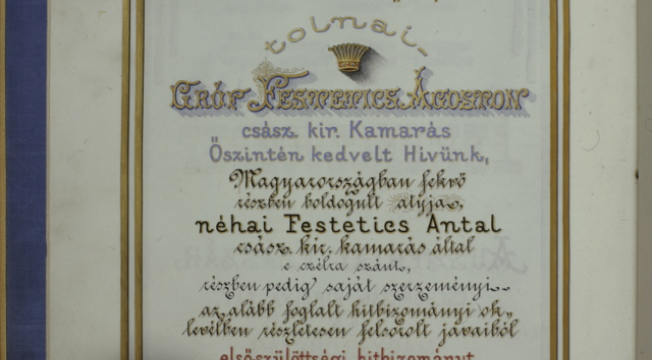 tolnai-
GRÓF FESTETICS ÁGOSTON
csász. kir. Kamarás
Őszintén kedvelt Hivünk,
Magyarországban fekvő
részben boldogult atyja,
néhai Festetics Antal
csász. kir. kamarás által
e czélra szánt,
részben pedig saját szerzeményi-
az alább foglalt hitbizományi ok-
levélben részletesen felsorolt javaiból
elsőszülöttségi hitbizományt